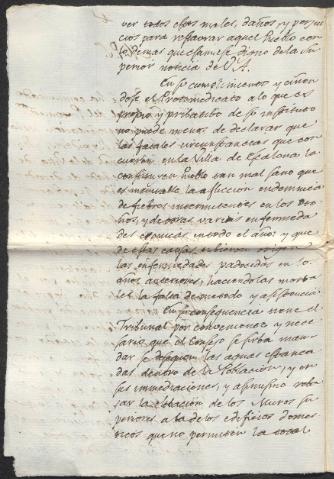 ver todos esos males, daños, y perjui
cios para restaurar aquel Pueblo con
lo demas que estamese digno de la Su
perior noticia de V.A.
En su cumplimiento y ciñen
dose el Protomedicato a lo que es
propio y pribatibo de su instituto
no puede menos de declarar que
las fatales circunstancias que con
curren en la Villa de Escalona la
constituyen Pueblo tan mal sano que
es inevitable la afliccion endemica
de fiebres intermitentes en los Oto
ños, y de otras varias enfermeda
des cronicas interdo el año: y que
de estas causas
las enfermedades padecidas en lo
años anteriores, haciendolas morta
les la falta de metodo y asistencia.
En su consequencia tiene el
Tribunal por combeniente y nece
sario que el Consejo se sirba man
dar se las aguas estanca
das dentro de la Poblacion, y en
ses inmediaciones, y asimismo reba
jar la elebacion de los Muros su
periores a la de los edificios domes
ticos que no permiten la total